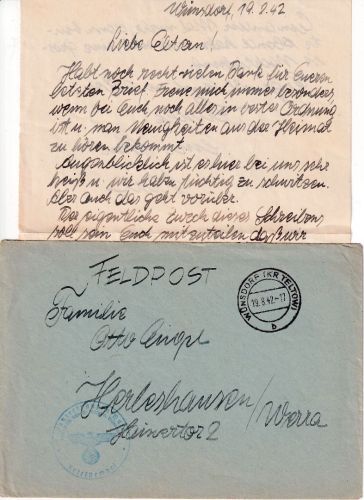 Wünsdorf, 19.8.42
Liebe Eltern!
Habt noch recht vielen Dank für Euern
letzten Brief. Freue mich immer besonders,
wenn bei Euch noch alles in bester Ordnung
ist u. man Neuigkeiten aus der Heimat
zu hören bekommt.
Augenblicklich ist es hier bei uns sehr
heiß u wir haben tüchtig zu schwitzen.
Aber auch das geht vorüber.
Der eigentliche Zweck dieses Schreibens
soll sein Euch mitzuteilen daß wir
FELDPOST
WÜNSDORF (KR TELTOW)
19.8.42.-17
b
Familie
Otto
Herleshausen/Werra
Hainertor 2